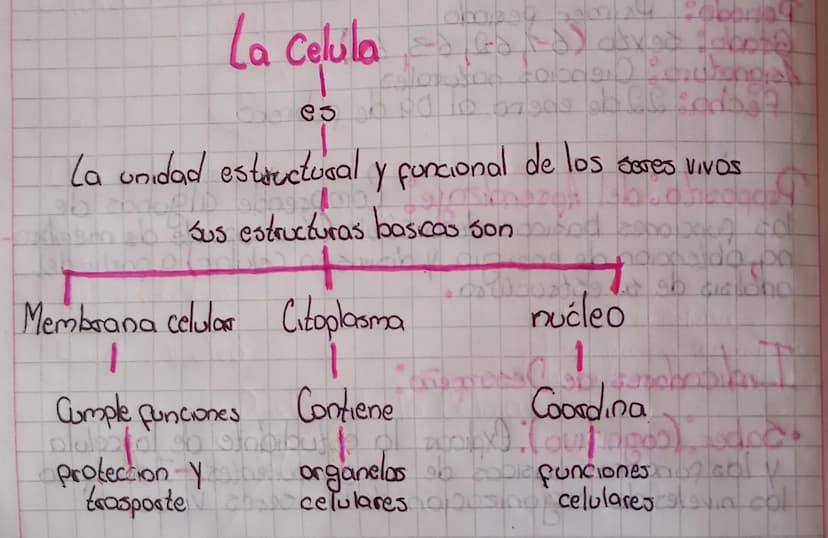 La Celúla
es
La unidad estructural y funcional de los seres vivos
sus estructuras bascas son
Membrana celular Citoplasma núcleo
Cumple funciones Contiene Coordina
proteccion y organelos funciones
trasporte celulares celulares